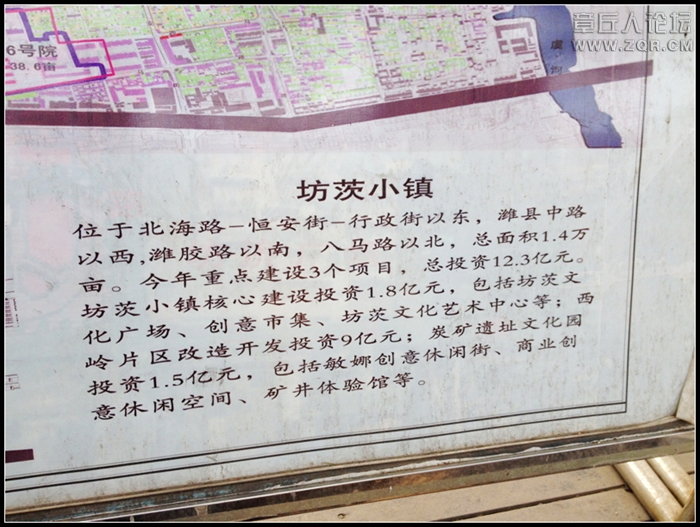 章丘人论坛
WWW.ZQR.CM
6号院
38.6亩
虞河
坊茨小镇
位于北海路-恒安街-行政街以东，潍县中路
以西,潍胶路以南，八马路以北，总面积1.4万
亩。今年重点建设3个项目，总投资12.3亿元。
坊茨小镇核心建设投资1.8亿元，包括坊茨文
化广场、创意市集、坊茨文化艺术中心等；西
岭片区改造开发投资9亿元；炭矿遗址文化园
投资1.5亿元，包括敏娜创意休闲街、商业创
意休闲空间、矿井体验馆等。